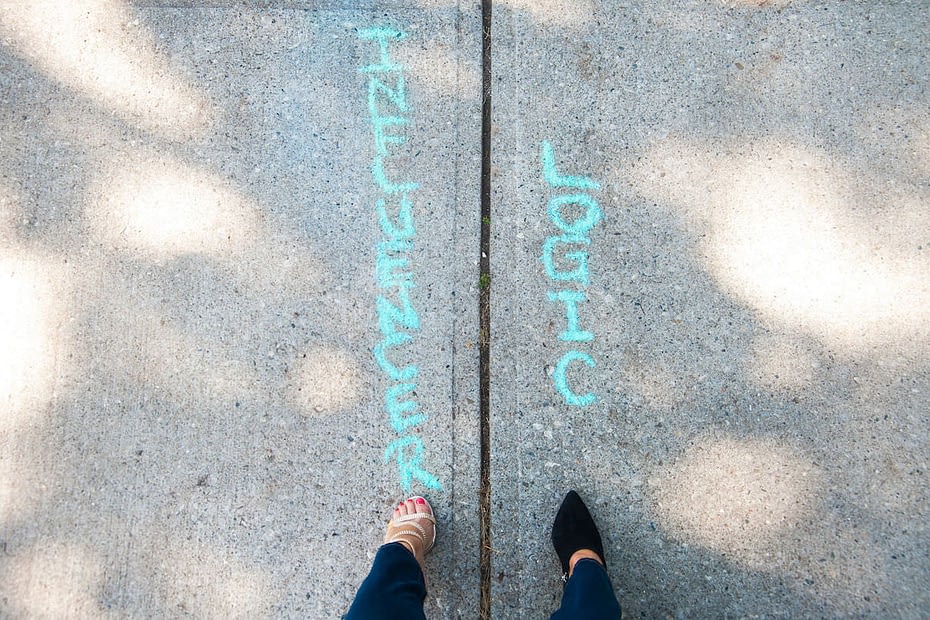 INFLUENCER
LOGIC